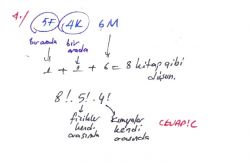 4./ 5F 4K 6M
bir arada bir arada
1 + 1 + 6 = 8 kitap gibi
düşün.
8!. 5!. 4!
fizikler kendi arasında
kimyalar kendi arasında
CEVAP: C